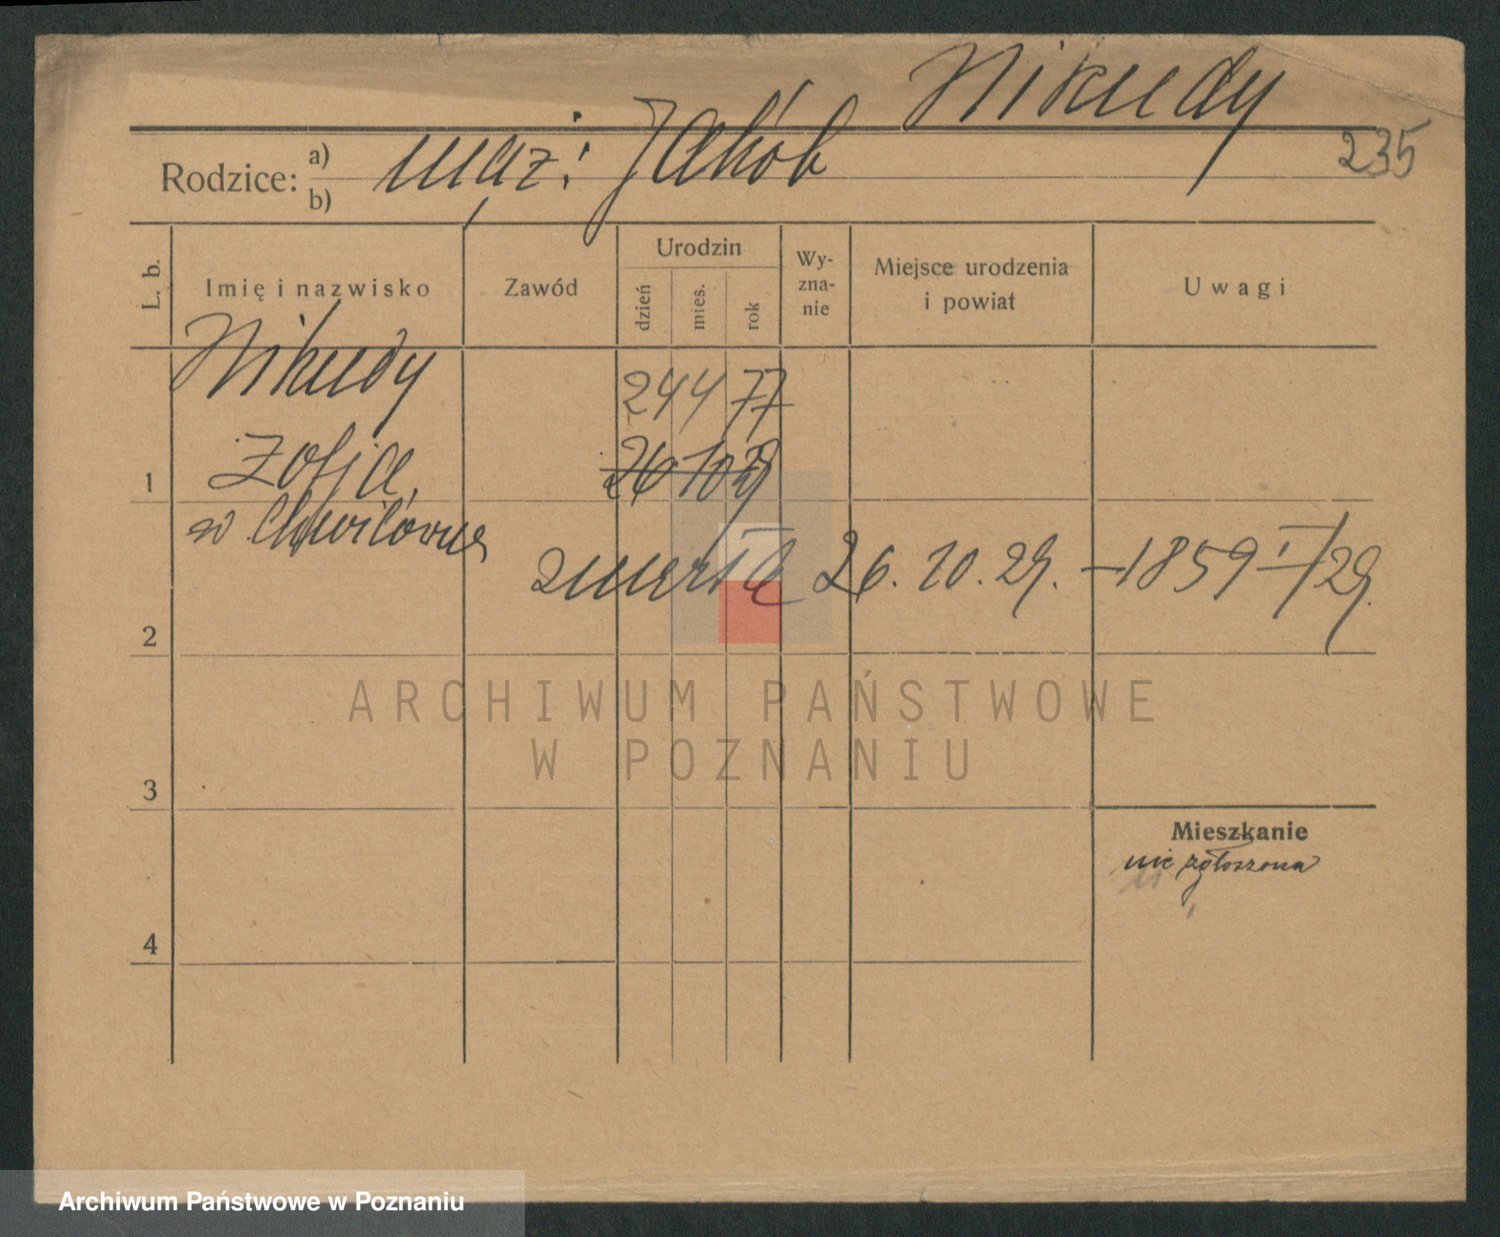 Nikudy
235
Rodzice: a) b)
mąż: Jakób
L. b.
Imię i nazwisko
Zawód
Urodzin
dzień
mies.
rok
Wy-
zna-
nie
Miejsce urodzenia
i powiat
Uwagi
Nikudy
24 4 77
Zofja
26 10 29
1
zmarła 26. 10. 29. – 1859 I/29.
2
ARCHIWUM PAŃSTWOWE
W POZNANIU
3
Mieszkanie
nie zgłoszona
4
Archiwum Państwowe w Poznaniu